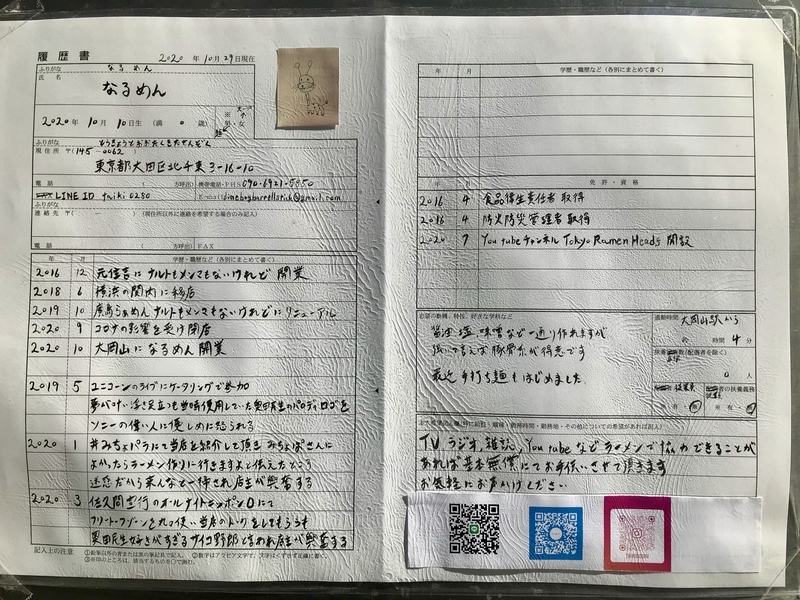 履歴書
2020 年 10月 29日現在
ふりがな なるめん
氏名
なるめん
2020年 10月 10日生 (満 0 歳)
※ 男・女
ふりがな とうきょうとおおたくきたせんぞく
現住所 〒(145-0062)
東京都大田区北千束3-16-10
電話 ( 方呼出) 携帯電話・PHS
LINE ID
E-mail
ふりがな
連絡先 〒( ) (現住所以外に連絡を希望する場合のみ記入)
電話 ( 方呼出) FAX
年 月 学歴・職歴など(各別にまとめて書く)
2016 12 元住吉にナルトもメンマもないけれど 開業
2018 6 横浜の関内に移店
2019 10 広島らぁめんナルトもメンマもないけれどにリニューアル
2020 9 コロナの影響を受け閉店
2020 10 大岡山になるめん開業
2019 5 ユニコーンのライブにケータリングで参加
夢みたい浮き足立つも当時使用していた奥田民生のパロディロゴを
ソニーの偉い人に優しめに怒られる
2020 1 #みちょパラにて当店を紹介して頂き みちょぱさんに
よかったらラーメン作りに行きますよと伝えたところ
迷惑だから来んなと一掃され店主が興奮する
2020 3 佐久間宣行のオールナイトニッポン0にて
当店のトークをしてもらうも
奥田民生好きがすぎるサイコ野郎と言われ店主が興奮する
記入上の注意 ①鉛筆以外の青または黒の筆記具で記入。 ②数字はアラビア文字で、文字はくずさず正確に書く。
③※印のところは、該当するものを○で囲む。
年 月 学歴・職歴など(各別にまとめて書く)
年 月 免許・資格
2016 4 食品衛生責任者 取得
2016 4 防火防災管理者 取得
2020 7 You tubeチャンネル Tokyo Ramen Heads 開設
志望の動機、特技、好きな学科など
醤油 塩 味噌など一通り作れますが
強いて言えば豚骨系が得意です
最近 手打ち麺もはじめました
通勤時間 大岡山駅から
約 時間 4分
(配偶者を除く)
0人
の扶養義務
有・無
有・無
本人希望記入欄(特に給料・職種・勤務時間・勤務地・その他についての希望があれば記入)
TV ラジオ, 雑誌, You tubeなどラーメンで協力できることが
あれば基本無償にてお手伝いさせて頂きます
お気軽にお声がけください